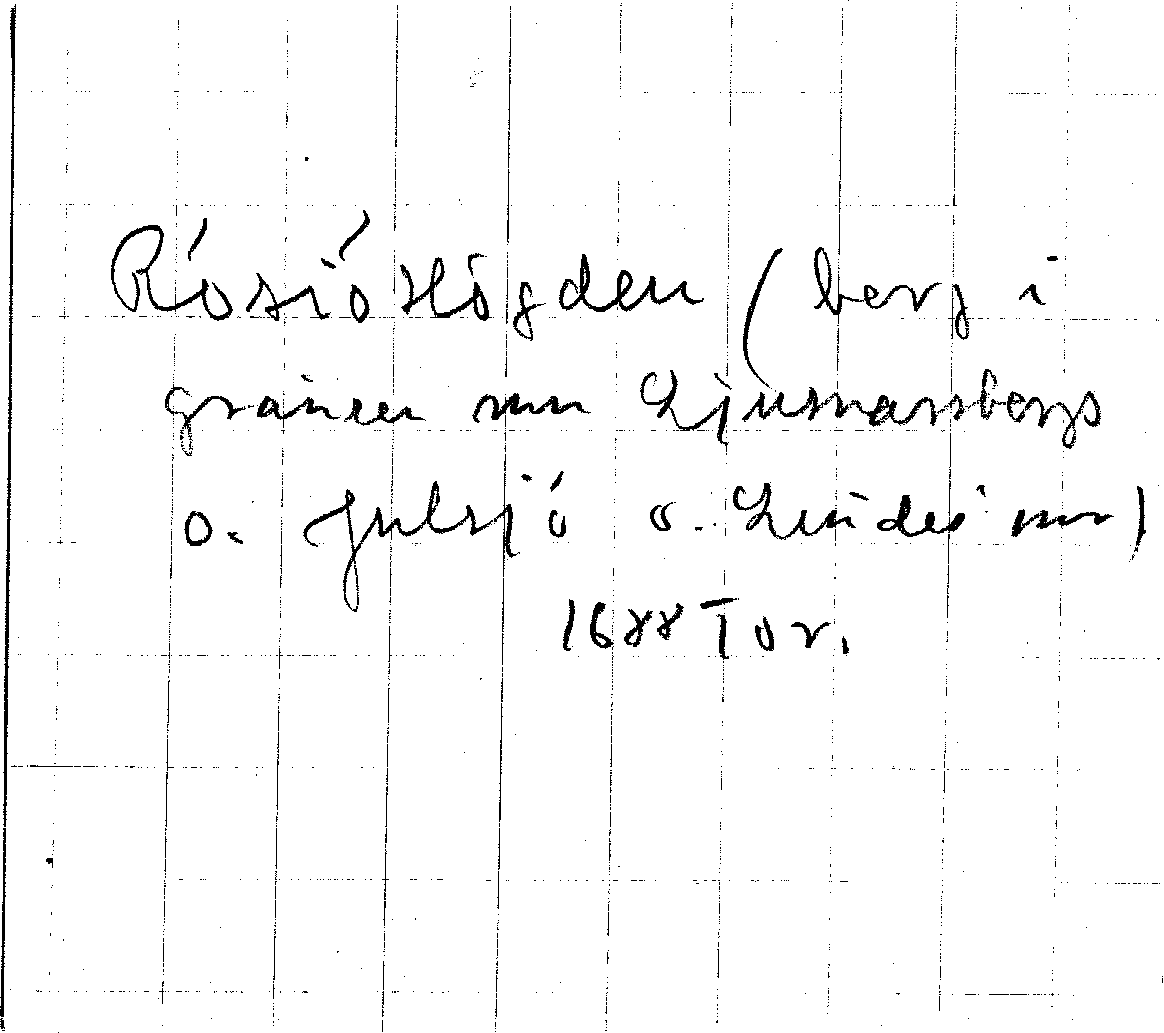 Rösiö Högden (berg i
gränsen mn Ljusnarsbergs
o. Gulsjö o. Lindes snr)
1688 Tor.